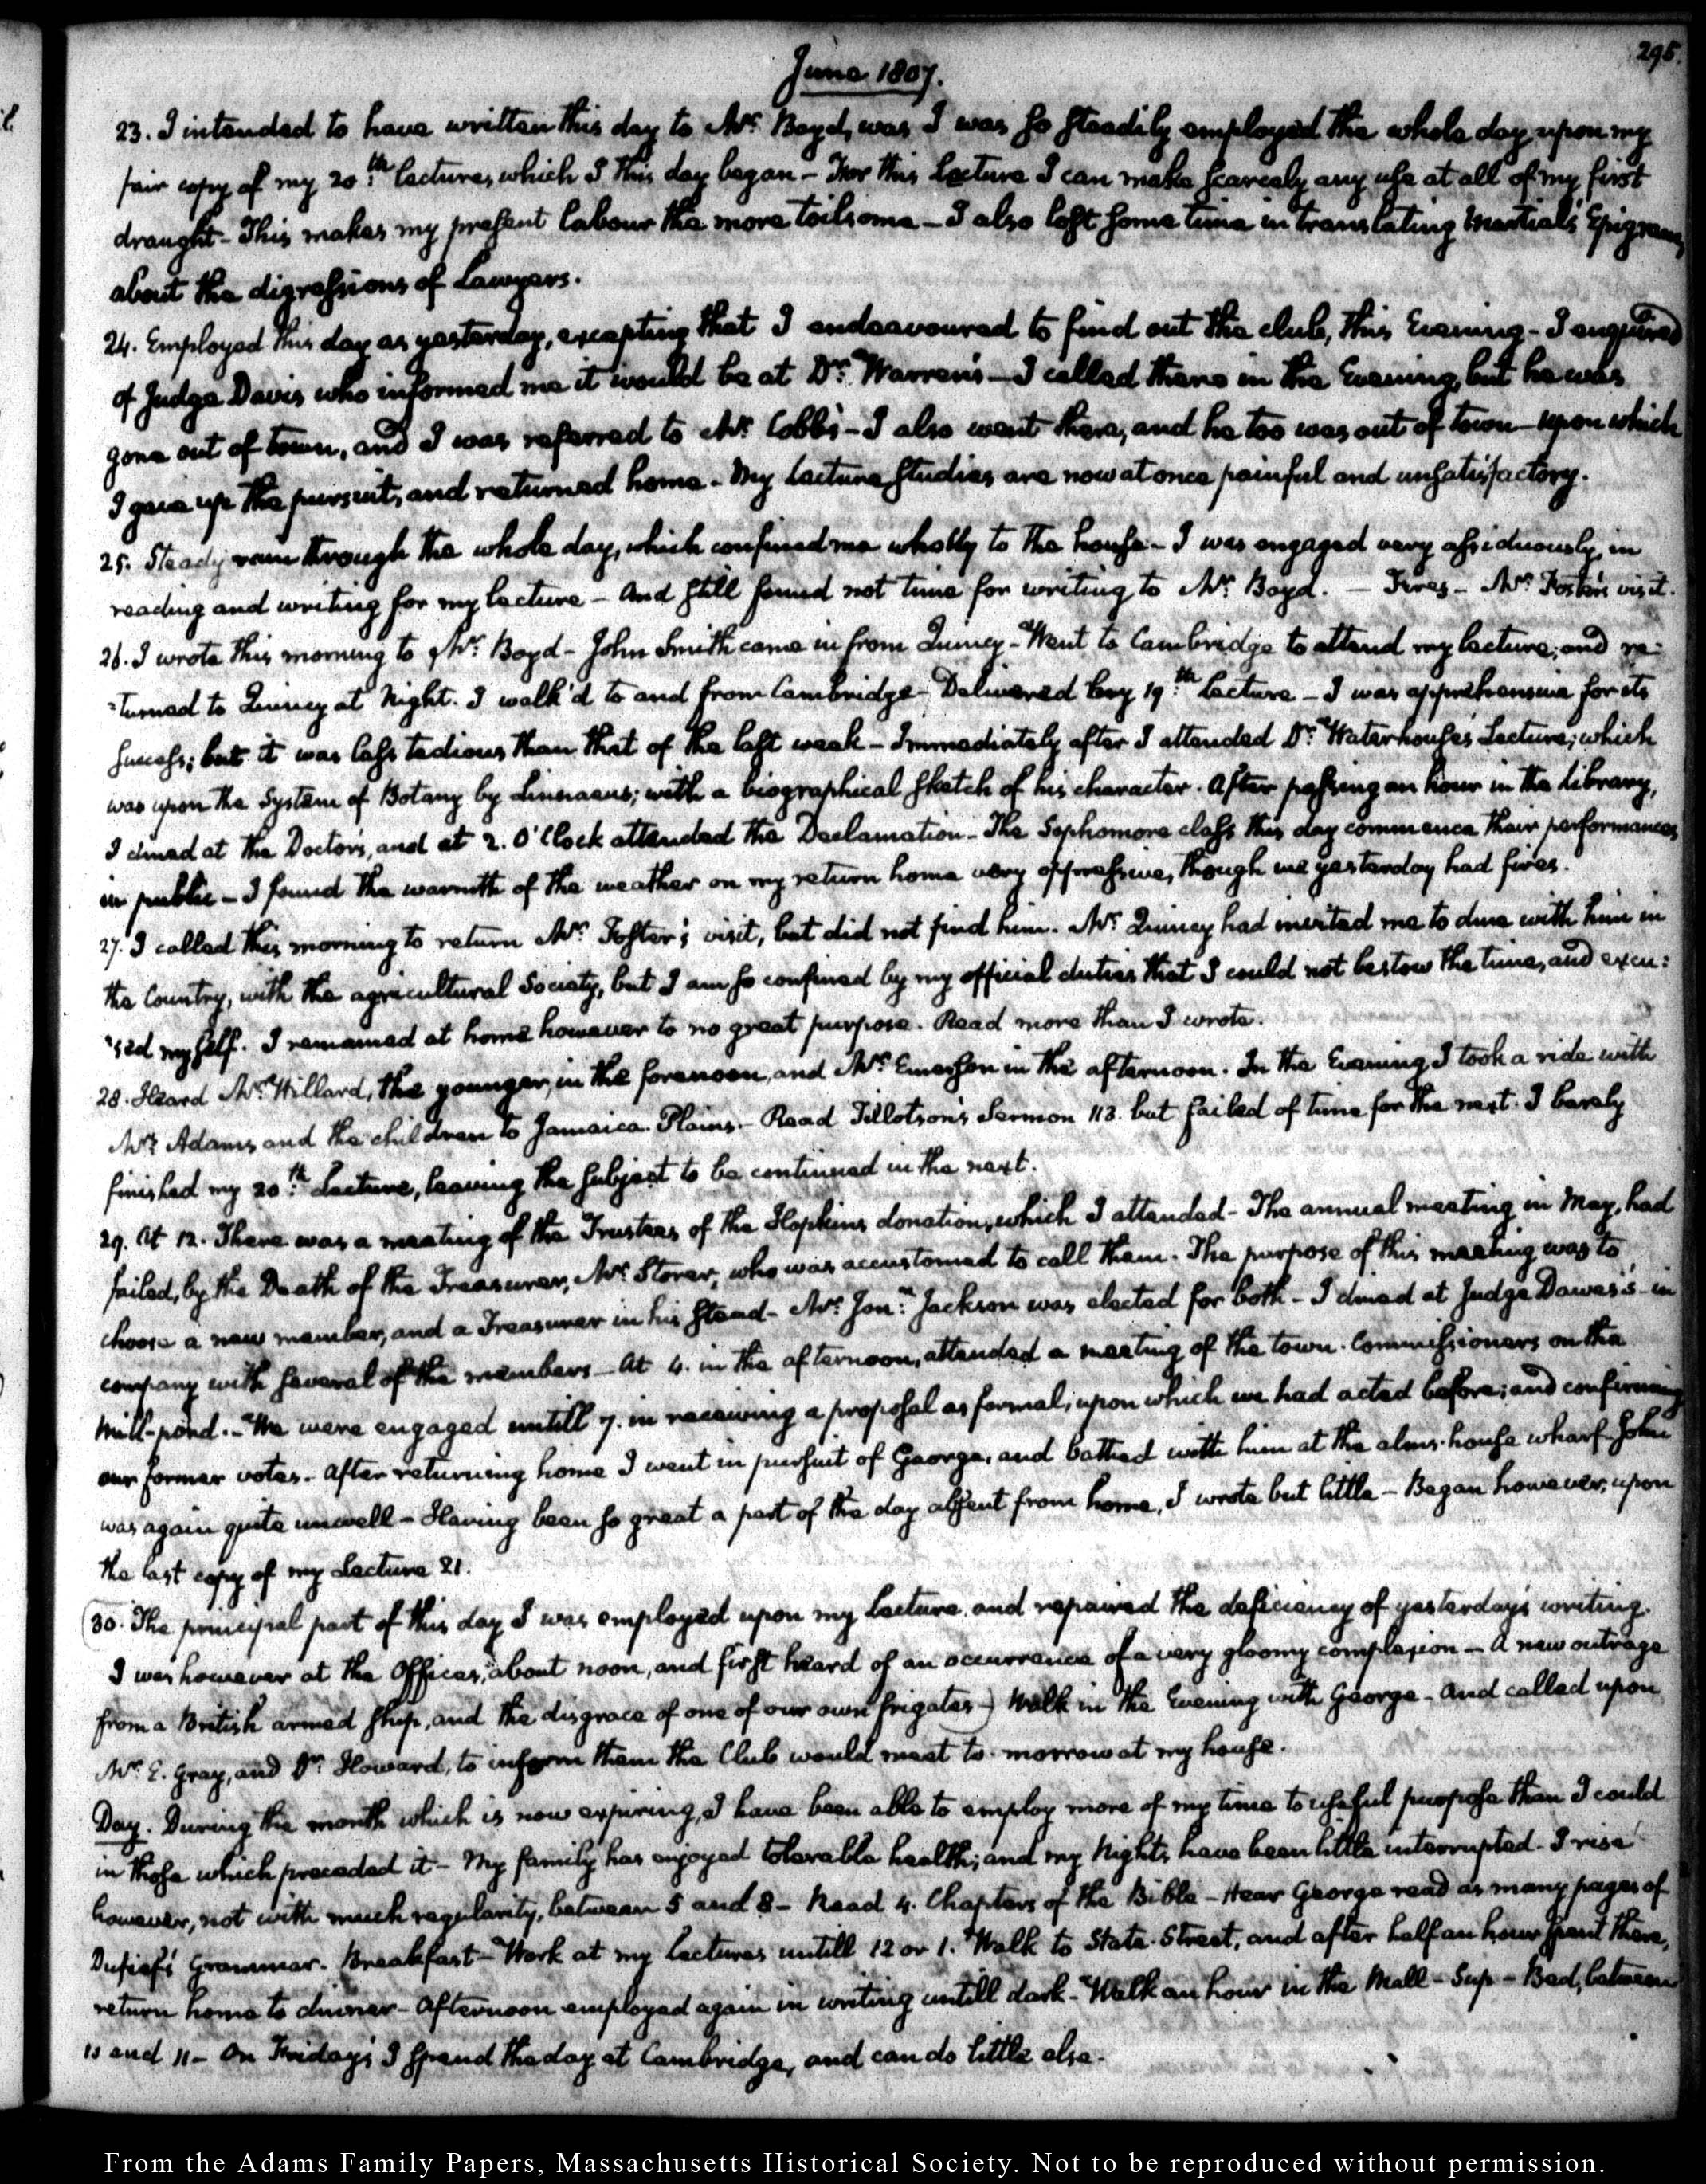 295.
June 1807.
23. I intended to have written this day to Mr. Boyd, was I was so steadily employed the whole day upon my
fair copy of my 20th. lecture, which I this day began - For this Lecture I can make scarcely any use at all of my first
draught - This makes my present labour the more toilsome - I also lost some time in translating Martial's Epigram
about the digressions of Lawyers.
24. Employed this day as yesterday, excepting that I endeavoured to find out the club, this Evening - I enquired
of Judge Davis who informed me it would be at Dr. Warren's - I called there in the Evening, but he was
gone out of town, and I was referred to Mr. Cobb's - I also went there, and he too was out of town - upon which
I gave up the pursuit, and returned home - My Lecture studies are now at once painful and unsatisfactory.
25. Steady rain through the whole day, which confined me wholly to the house - I was engaged very assiduously, in
reading and writing for my lecture - And still found not time for writing to Mr. Boyd. - Fires - Mr. Foster's visit.
26. I wrote this morning to Mr. Boyd - John Smith came in from Quincy - Went to Cambridge to attend my lecture; and re-
-turned to Quincy at Night. I walk'd to and from Cambridge - Delivered my 19th. Lecture - I was apprehensive for its
success; but it was less tedious than that of the last week - Immediately after I attended Dr. Waterhouse's Lecture; which
was upon the System of Botany by Linnaeus; with a biographical sketch of his character. After passing an hour in the Library,
I dined at the Doctor's, and at 2. O'Clock attended the Declamation - The Sophomore class this day commence their performances
in public - I found the warmth of the weather on my return home very oppressive, though we yesterday had fires.
27. I called this morning to return Mr. Foster's visit, but did not find him. Mr. Quincy had invited me to dine with him in
the Country, with the agricultural Society, but I am so confined by my official duties that I could not bestow the time, and excu:
:sed myself. I remained at home however to no great purpose. Read more than I wrote.
28. Heard Mr. Willard, the younger, in the forenoon, and Mr. Emerson in the afternoon. In the Evening I took a ride with
Mrs. Adams and the children to Jamaica Plains. - Read Tillotson's Sermon 113. but failed of time for the next. I barely
finished my 20th. Lecture, leaving the subject to be continued in the next.
29. At 12. There was a meeting of the Trustees of the Hopkins donation, which I attended - The annual meeting in May, had
failed, by the Death of the Treasurer, Mr. Storer, who was accustomed to call them. The purpose of this meeting was to
choose a new member, and a Treasurer in his stead - Mr. Jon.n Jackson was elected for both - I dined at Judge Dawes's - in
company with several of the members - At 4. in the afternoon, attended a meeting of the town Commissioners on the
Mill-pond. - We were engaged untill 7. in receiving a proposal as formal, upon which we had acted before; and confirming
our former votes. After returning home I went in pursuit of George, and bathed with him at the alms-house wharf - John
was again quite unwell - Having been so great a part of the day absent from home, I wrote but little - Began however, upon
the last copy of my Lecture 21.
30. The principal part of this day I was employed upon my Lecture, and repaired the deficiency of yesterday's writing.
I was however at the Offices, about noon, and first heard of an occurrence of a very gloomy complexion - A new outrage
from a British armed ship, and the disgrace of one of our own frigates) Walk in the Evening with George - And called upon
Mr. E. Gray, and Dr. Howard, to inform them the Club would meet to-morrow at my house.
Day. During the month which is now expiring, I have been able to employ more of my time to useful purpose than I could
in those which preceded it - My family has enjoyed tolerable health; and my Nights have been little interrupted - I rise
however, not with much regularity, between 5 and 8 - Read 4. Chapters of the Bible - Hear George read as many pages of
Dufief's Grammar. Breakfast - Work at my Lectures untill 12 or 1. Walk to State-Street, and after half an hour spent there,
return home to dinner - Afternoon employed again in writing untill dark - Walk an hour in the Mall - Sup - Bed, between
10 and 11 - On Friday's I spend the day at Cambridge, and can do little else.
From the Adams Family Papers, Massachusetts Historical Society. Not to be reproduced without permission.